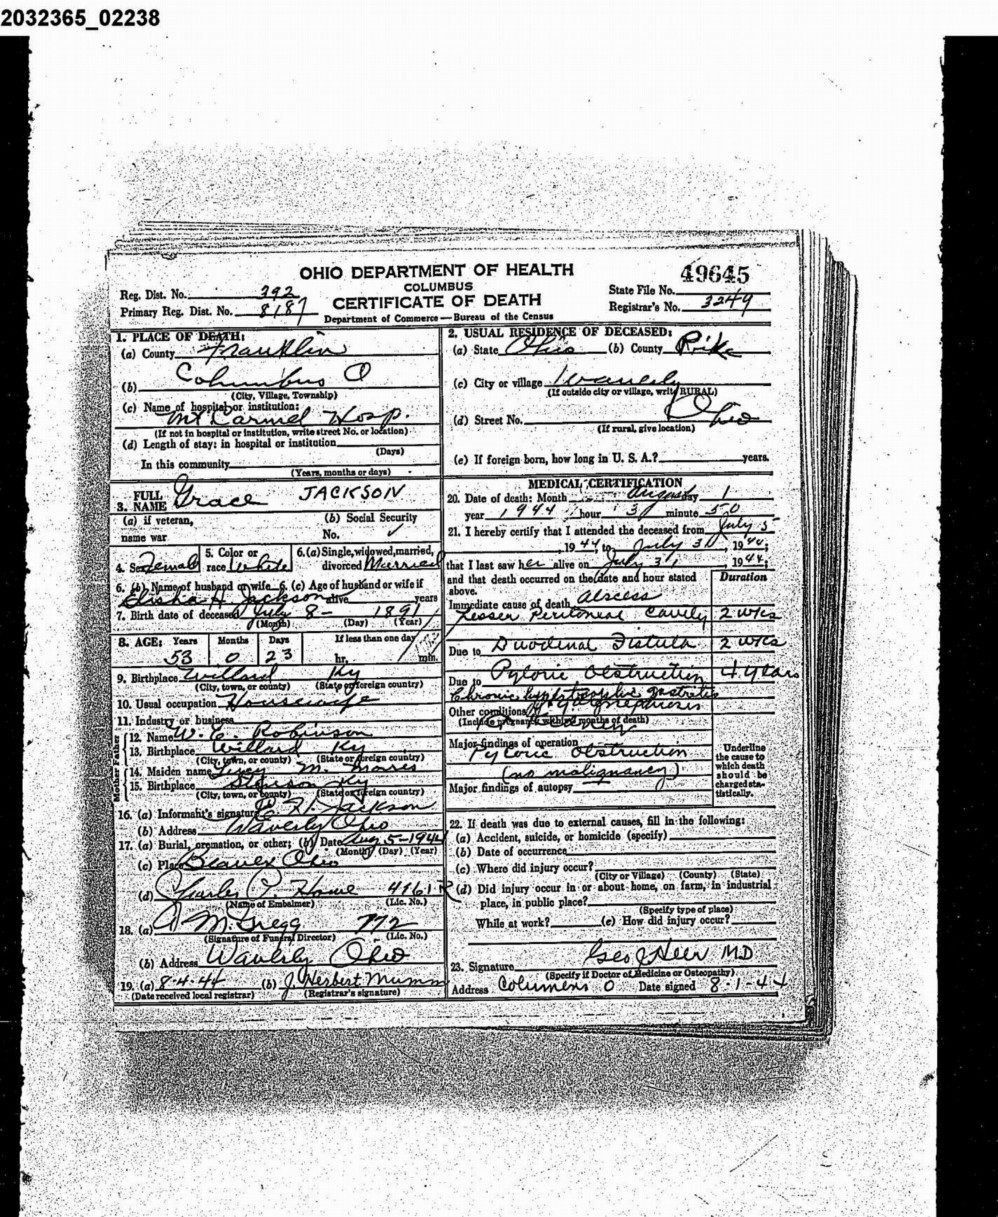 2032365_02238
OHIO DEPARTMENT OF HEALTH
COLUMBUS
CERTIFICATE OF DEATH
Department of Commerce — Bureau of the Census
49645
Reg. Dist. No. 392
State File No.
Primary Reg. Dist. No. 8187
Registrar's No. 3249
1. PLACE OF DEATH:
(a) County Franklin
(b) Columbus O
(City, Village, Township)
(c) Name of hospital or institution:
Mt Carmel Hosp.
(If not in hospital or institution, write street No. or location)
(d) Length of stay: in hospital or institution
(Days)
In this community
(Years, months or days)
2. USUAL RESIDENCE OF DECEASED:
(a) State Ohio (b) County Pike
(c) City or village Waverly
(If outside city or village, write RURAL)
(d) Street No. Ohio
(If rural, give location)
(e) If foreign born, how long in U. S. A.? years.
3. FULL NAME Grace JACKSON
(a) if veteran, name war
(b) Social Security No.
4. Sex Female 5. Color or race White 6. (a) Single, widowed, married, divorced Married
6. (b) Name of husband or wife 6. (c) Age of husband or wife if
Elisha H Jackson alive years
7. Birth date of deceased July 8- 1891
(Month) (Day) (Year)
8. AGE: Years Months Days If less than one day
53 0 23 hr. min.
9. Birthplace Willard Ky
(City, town, or county) (State or foreign country)
10. Usual occupation Housewife
11. Industry or business
Father
12. Name W. E. Robinson
13. Birthplace Willard Ky
(City, town, or county) (State or foreign country)
Mother
14. Maiden name M.
15. Birthplace Ky
(City, town, or county) (State or foreign country)
16. (a) Informant's signature E H Jackson
(b) Address Waverly Ohio
17. (a) Burial, cremation, or other; (b) Date Aug 5-1944
(Month) (Day) (Year)
(c) Place Beaver Ohio
(d) Charley 4161 R
(Name of Embalmer) (Lic. No.)
18. (a) M. Gregg 772
(Signature of Funeral Director) (Lic. No.)
(b) Address Waverly Ohio
19. (a) 8-4-44 (b) J Herbert Mumm
(Date received local registrar) (Registrar's signature)
MEDICAL CERTIFICATION
20. Date of death: Month August day 1
year 1944 hour 3 minute 50
21. I hereby certify that I attended the deceased from July 5
, 1944 to July 31, 1944;
that I last saw her alive on July 31, 1944;
and that death occurred on the date and hour stated above.
Duration
Immediate cause of death Abscess
Lesser Peritoneal Cavity 2 wks
Due to Duodenal Fistula 2 wks
Due to Pyloric Obstruction 4 years
Chronic hypertrophic gastritis
Other conditions
(Include pregnancy within 3 months of death)
Major findings of operation
Pyloric Obstruction
(no malignancy)
Major findings of autopsy
Underline the cause to which death should be charged statistically.
22. If death was due to external causes, fill in the following:
(a) Accident, suicide, or homicide (specify)
(b) Date of occurrence
(c) Where did injury occur?
(City or Village) (County) (State)
(d) Did injury occur in or about home, on farm, in industrial
place, in public place?
(Specify type of place)
While at work? (e) How did injury occur?
23. Signature Geo J Heer MD
(Specify if Doctor of Medicine or Osteopathy)
Address Columbus O Date signed 8-1-44